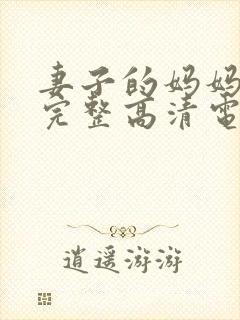 妻子的妈妈
完整高清电
逍遥游游